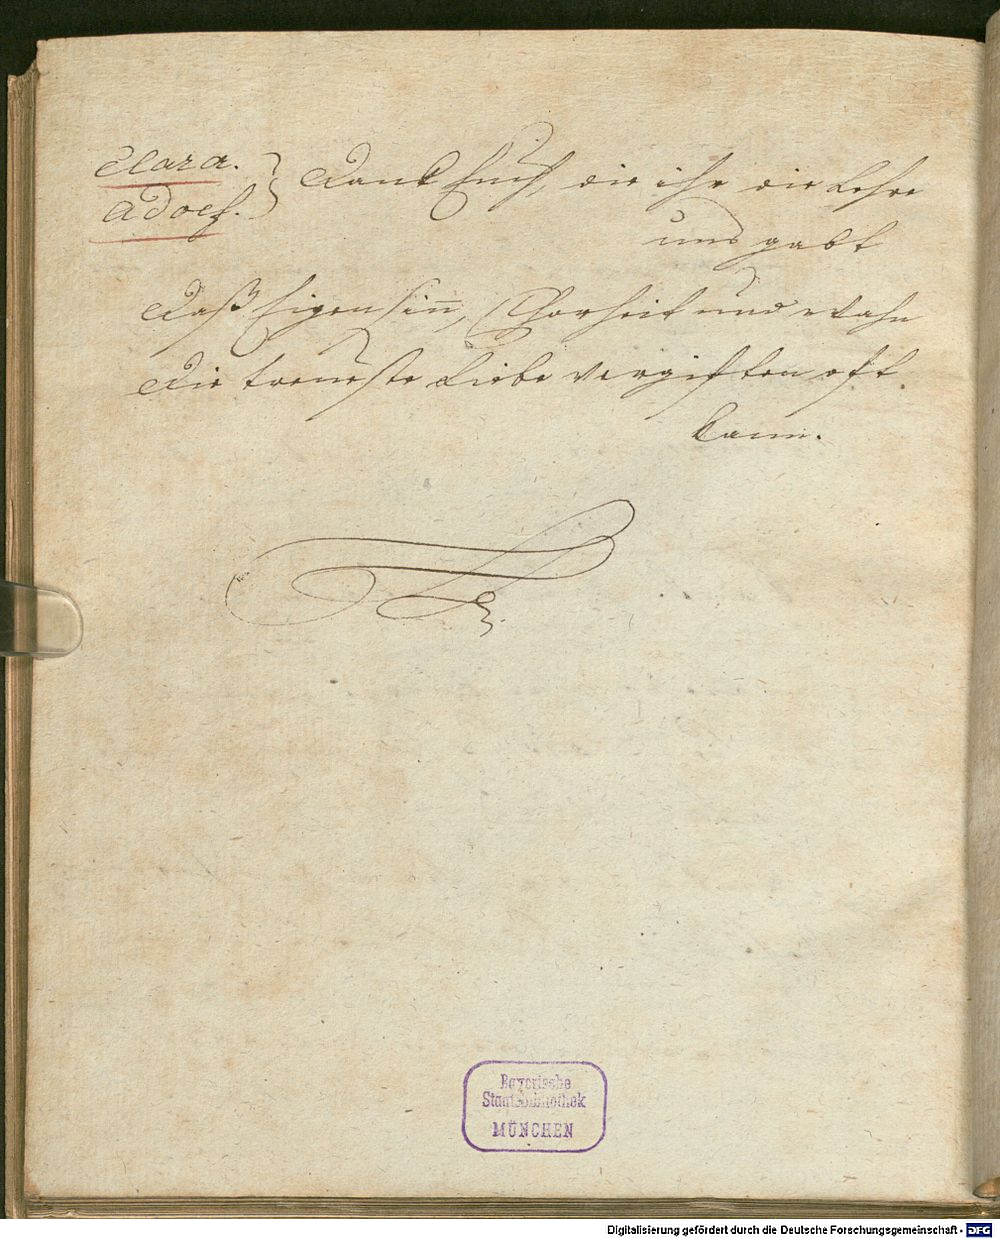 Clara.
Adolf. } Dank Euch, die ihr die Lehre
uns gabt
Daß Eigensiñ, Thorheit und Wahn
Die treueste Liebe vergiften oft
kann.
Bayerische
Staatsbibliothek
MÜNCHEN
Digitalisierung gefördert durch die Deutsche Forschungsgemeinschaft - DFG